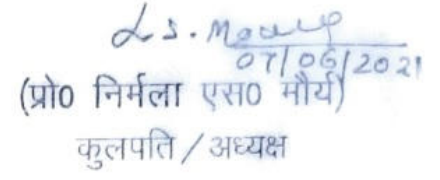 07/06/2021
(प्रो0 निर्मला एस0 मौर्य)
कुलपति / अध्यक्ष